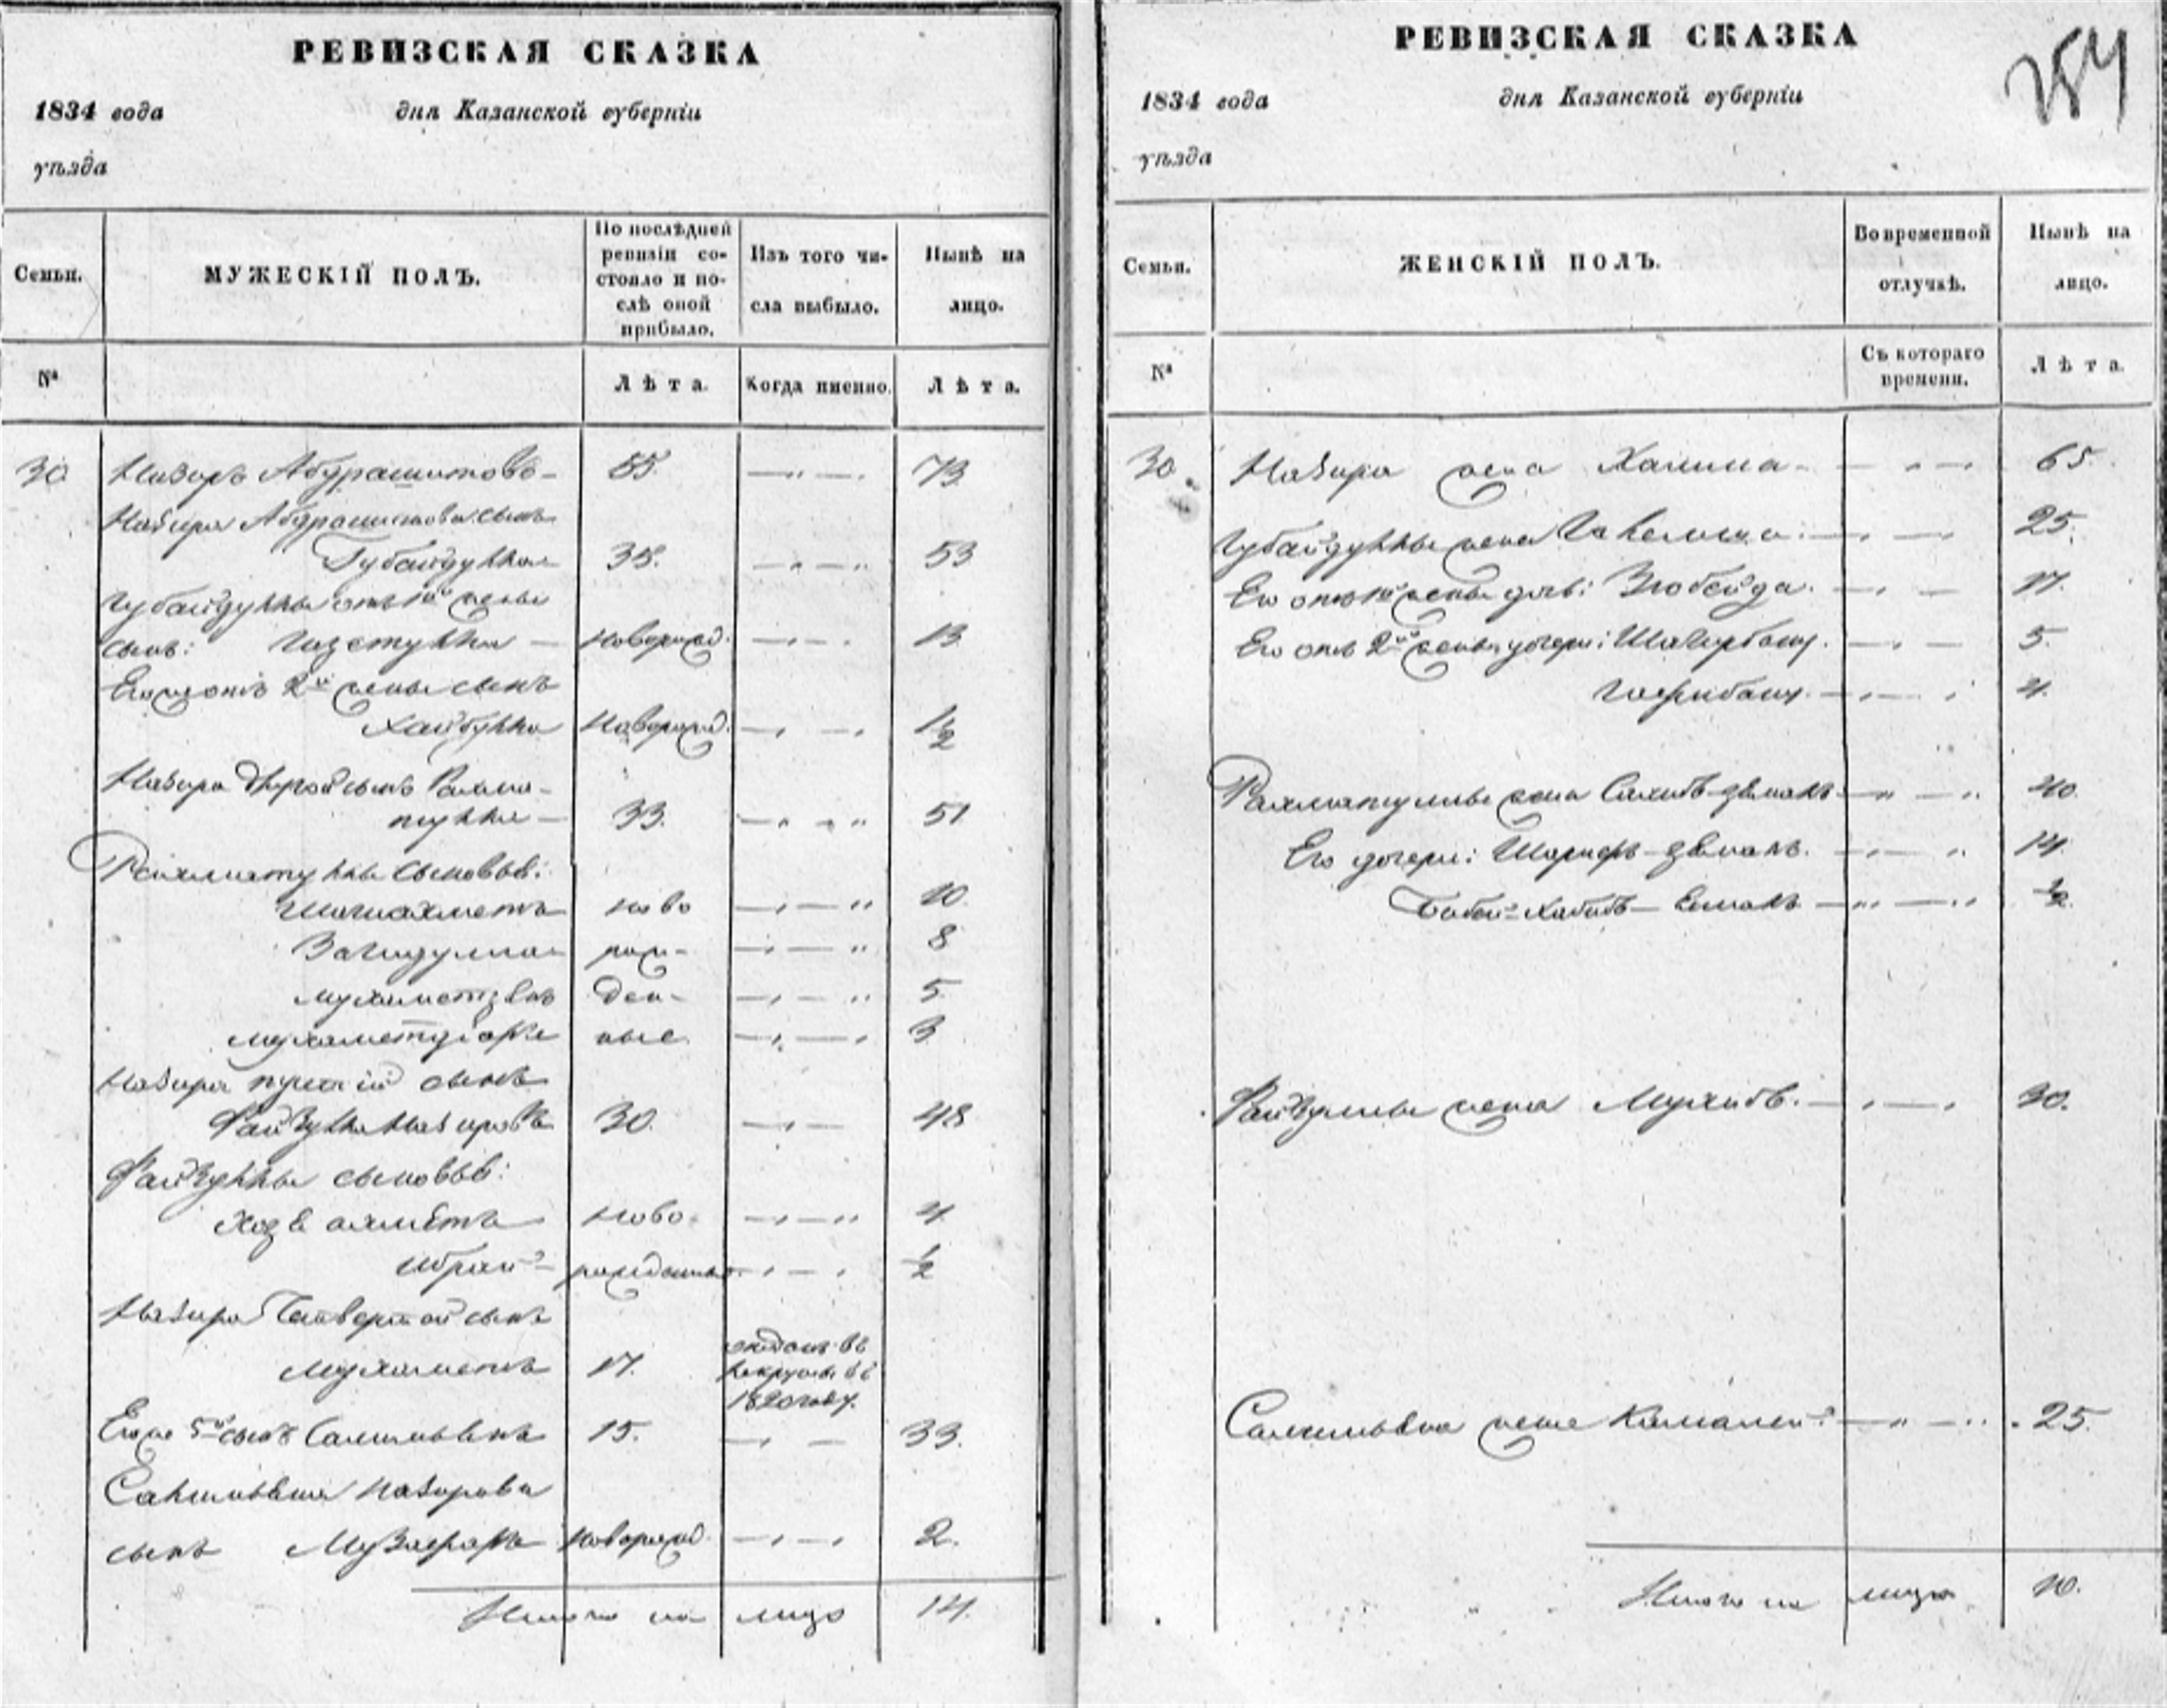 РЕВИЗСКАЯ СКАЗКА
1834 года дня Казанской губерніи
уѣзда
Семьи.
МУЖЕСКІЙ ПОЛЪ.
По послѣдней ревизіи состояло и послѣ оной прибыло.
Изъ того числа выбыло.
Нынѣ на лицо.
№
Лѣта.
Когда именно.
Лѣта.
30 Назиръ Абдрашитовъ 55. 73
Назира Абдрашитова сынъ
Губайдулла 35. 53
Губайдуллы отъ 1й жены
сынъ: новорожд. 13
Его же отъ 2й жены сынъ
Хайбулла новорожд. 1½
Назира другой сынъ Рахма-
тулла 33. 51
Рахматуллы сыновья:
Шагиахметъ ново 10.
Загидулла рож- 8
Мухаметзянъ ден- 5.
ные 3
Назира третій сынъ
Файзулла Назировъ 30. 48
Файзуллы сыновья:
Ходжиахметъ ново- 4
Ибрай рожденные ½
Назира Четвертой сынъ
Мухаметъ 17. отданъ въ рекруты въ 1820 году.
Его же 5й сынъ Салимьянъ 15. 33.
Салимьяна Назирова
сынъ Музафаръ новорожд. 2.
Итого на лицо 14.
РЕВИЗСКАЯ СКАЗКА
1834 года дня Казанской губерніи
уѣзда
Семьи.
ЖЕНСКІЙ ПОЛЪ.
Во временной отлучкѣ.
Нынѣ на лицо.
№
Съ котораго времени.
Лѣта.
30. Назира жена Халима 65.
Губайдуллы жена 25.
Его отъ 1й жены дочь: Зюбейда. 17.
Его отъ 2й жены дочери: 5.
4.
Рахматуллы жена 40.
Его дочери: 14
½
Файзуллы жена 30.
Салимьяна жена 25.
Итого на лицо 10.